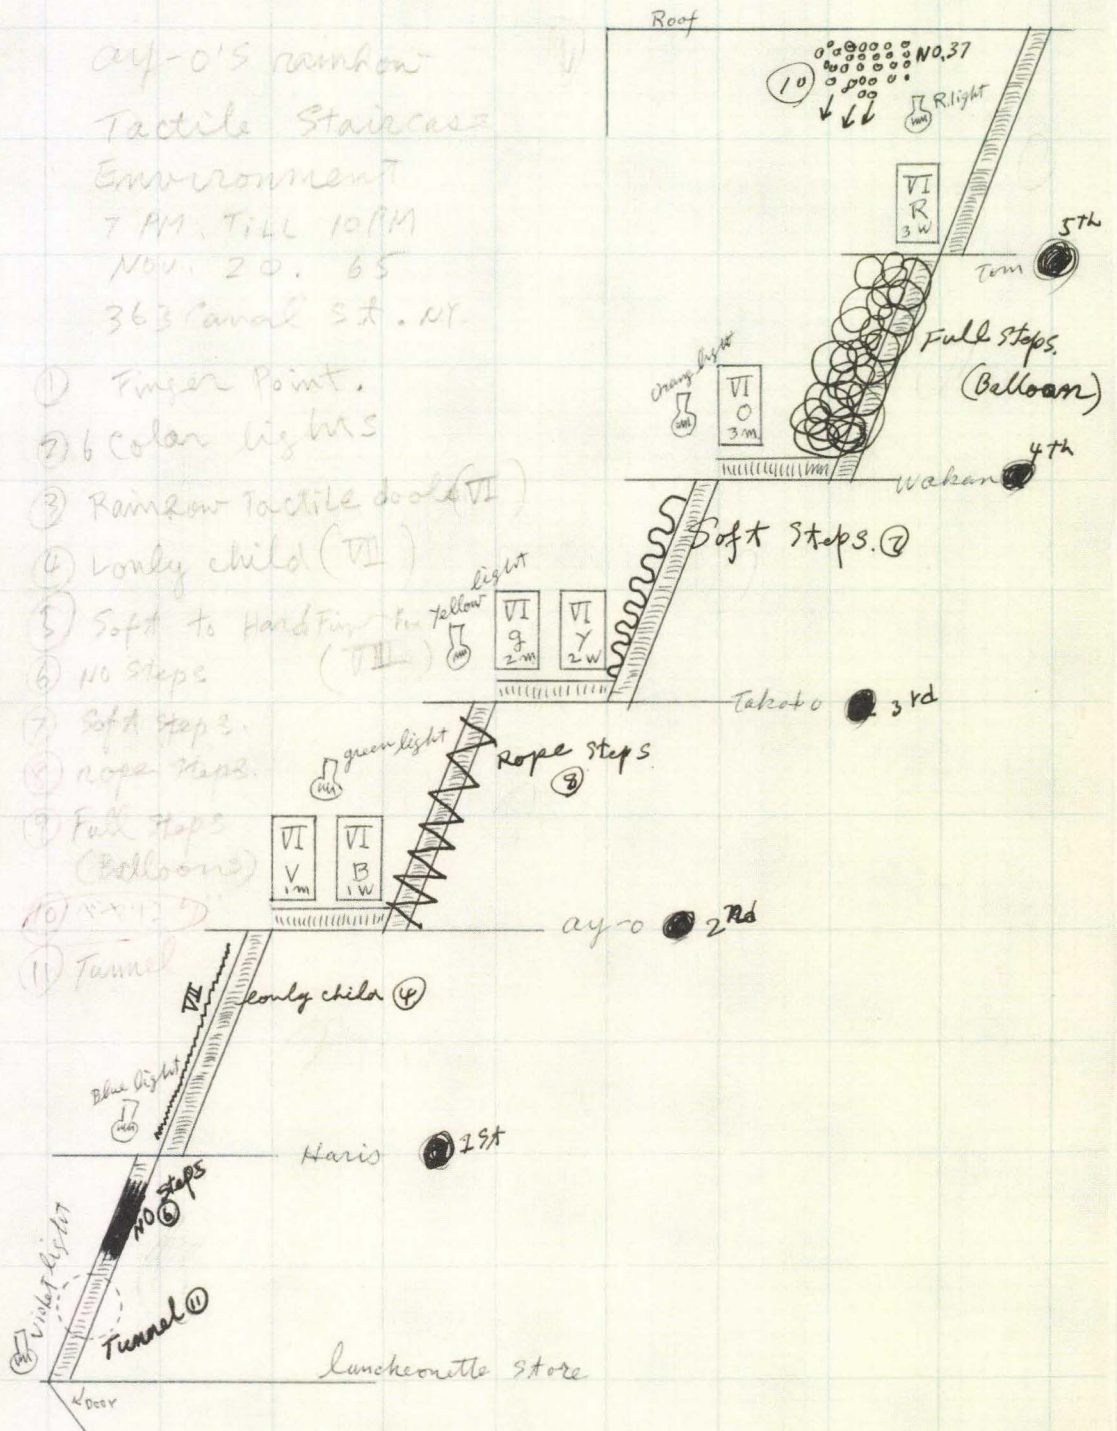 ay-o's rainbow
Tactile Staircase
Environment
7 PM. TILL 10 PM
NOV. 20. 65
363 Canal St. NY.
① Finger Point.
② 6 Color lights
③ Rainbow Tactile (VI)
④ Lonly child (VII)
⑤ Soft to Hard
⑥ NO Steps
⑦ Soft Steps.
⑧ Rope Steps.
⑨ Full Steps
(Balloons)
⑩
⑪ Tunnel
Roof
NO.37
⑩
R. light
VI
R
3 W
5th
Tom
Full Steps.
(Balloan)
Orang light
VI
O
3 m
4th
Wakan
Soft Steps. ⑦
Yellow light
VI
g
2 m
VI
Y
2 W
Takako
3rd
Rope Steps
⑧
green light
VI
V
1 m
VI
B
1 W
ay-o
2nd
VII
Lonly child ④
Blue light
Haris
1st
NO Steps
⑥
Violet light
Tunnel ⑪
luncheonette store
Door